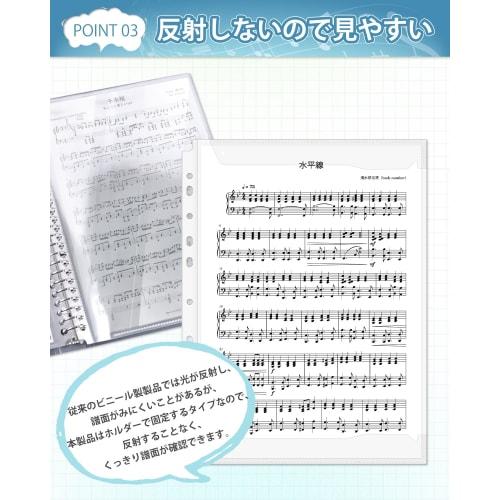 POINT 03
反射しないので見やすい
水平線
水平線
♩= 72
清水依与吏 (back number)
mf
従来のビニール製製品では光が反射し、
譜面がみにくいことがあるが、
本製品はホルダーで固定するタイプなので、
反射することなく、
くっきり譜面が確認できます。